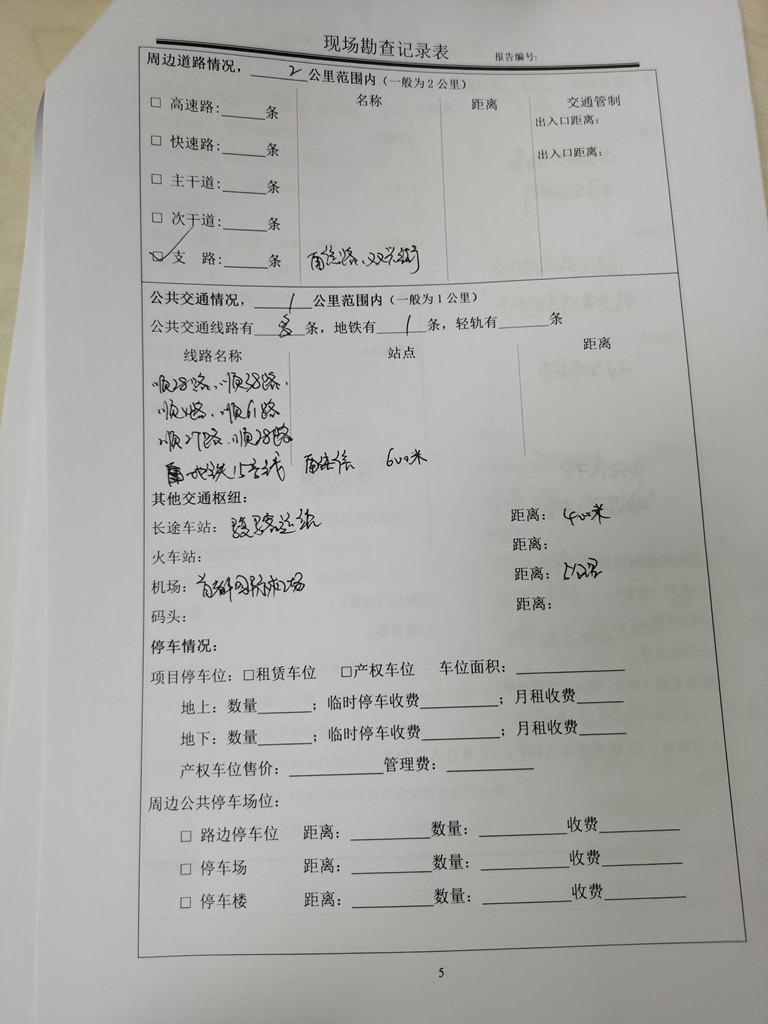 现场勘查记录表 报告编号:
周边道路情况，2公里范围内（一般为2公里）
名称 距离 交通管制
□ 高速路:______条 出入口距离：
□ 快速路:______条 出入口距离：
□ 主干道:______条
□ 次干道:______条
☑ 支 路:______条 双兴街
公共交通情况，1公里范围内（一般为1公里）
公共交通线路有多条，地铁有1条，轻轨有______条
线路名称 站点 距离
顺28路、顺38路、
顺4路、顺61路
顺27路、顺28路
地铁15号线 600米
其他交通枢纽：
长途车站： 客运站 距离： 400米
火车站： 距离：
机场：首都国际机场 距离： 5公里
码头： 距离：
停车情况：
项目停车位：□租赁车位 □产权车位 车位面积：____________
地上：数量______；临时停车收费________；月租收费_____
地下：数量______；临时停车收费________；月租收费_____
产权车位售价：__________管理费：_________
周边公共停车场位：
□ 路边停车位 距离：_________数量：_________收费________
□ 停车场 距离：_________数量：_________收费________
□ 停车楼 距离：_________数量：_________收费________
5